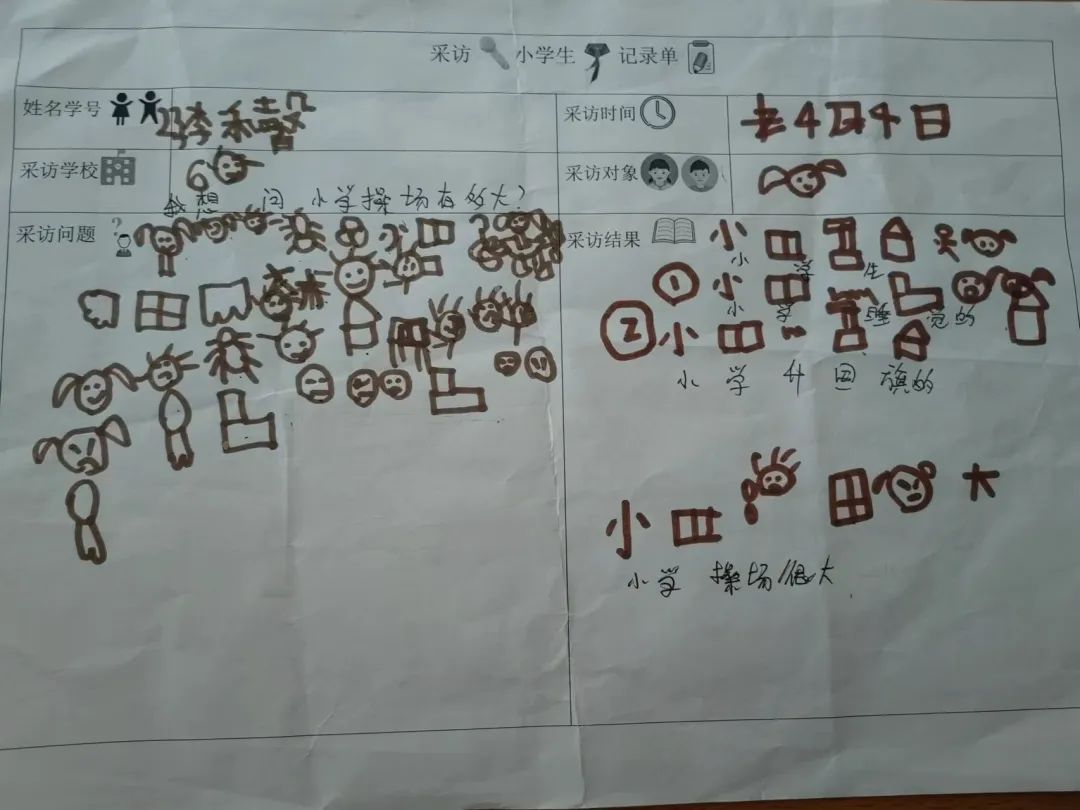 采访 小学生 记录单
姓名学号
采访时间 4月4日
采访学校
采访对象
我想 问 小学操场有多大?
采访问题
采访结果 小
小 学 生
① 小
小 学 睡 觉的
② 小
小 学 升 国 旗的
小 田 大
小学 操场很大